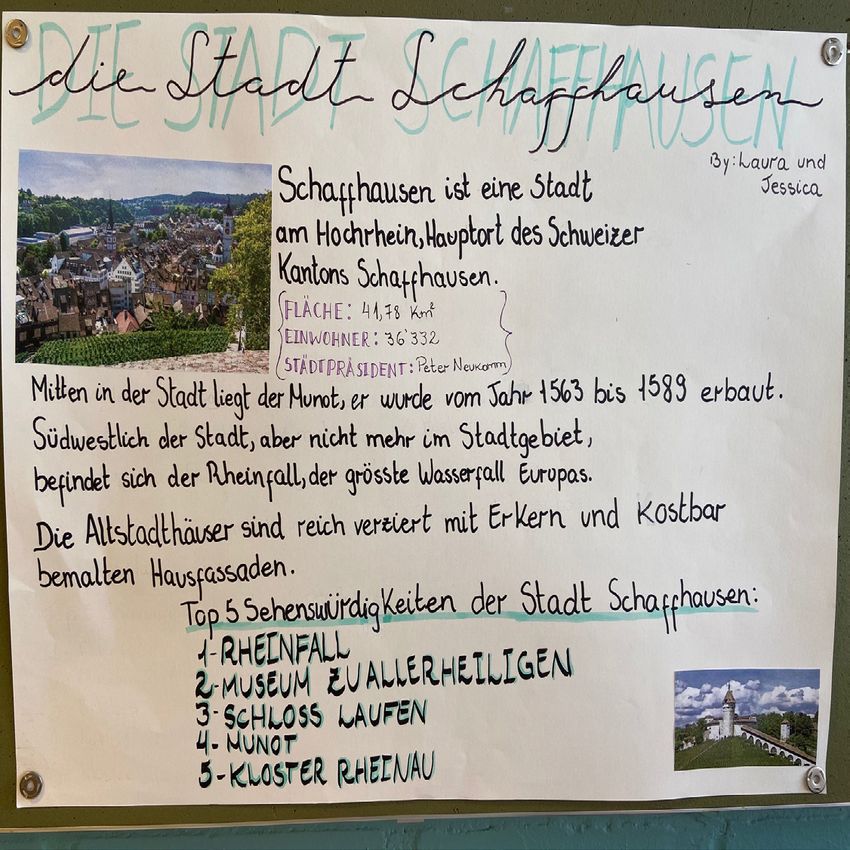 die Stadt Schaffhausen
DIE STADT SCHAFFHAUSEN
By: Laura und
Jessica
Schaffhausen ist eine Stadt
am Hochrhein, Hauptort des Schweizer
Kantons Schaffhausen.
FLÄCHE: 41,78 Km²
EINWOHNER: 36'332
STÄDTPRÄSIDENT: Peter Neukomm
Mitten in der Stadt liegt der Munot, er wurde vom Jahr 1563 bis 1589 erbaut.
Südwestlich der Stadt, aber nicht mehr im Stadtgebiet,
befindet sich der Rheinfall, der grösste Wasserfall Europas.
Die Altstadthäuser sind reich verziert mit Erkern und Kostbar
bemalten Hausfassaden.
Top 5 Sehenswürdigkeiten der Stadt Schaffhausen:
1-RHEINFALL
2-MUSEUM ZU ALLERHEILIGEN
3-SCHLOSS LAUFEN
4-MUNOT
5-KLOSTER RHEINAU